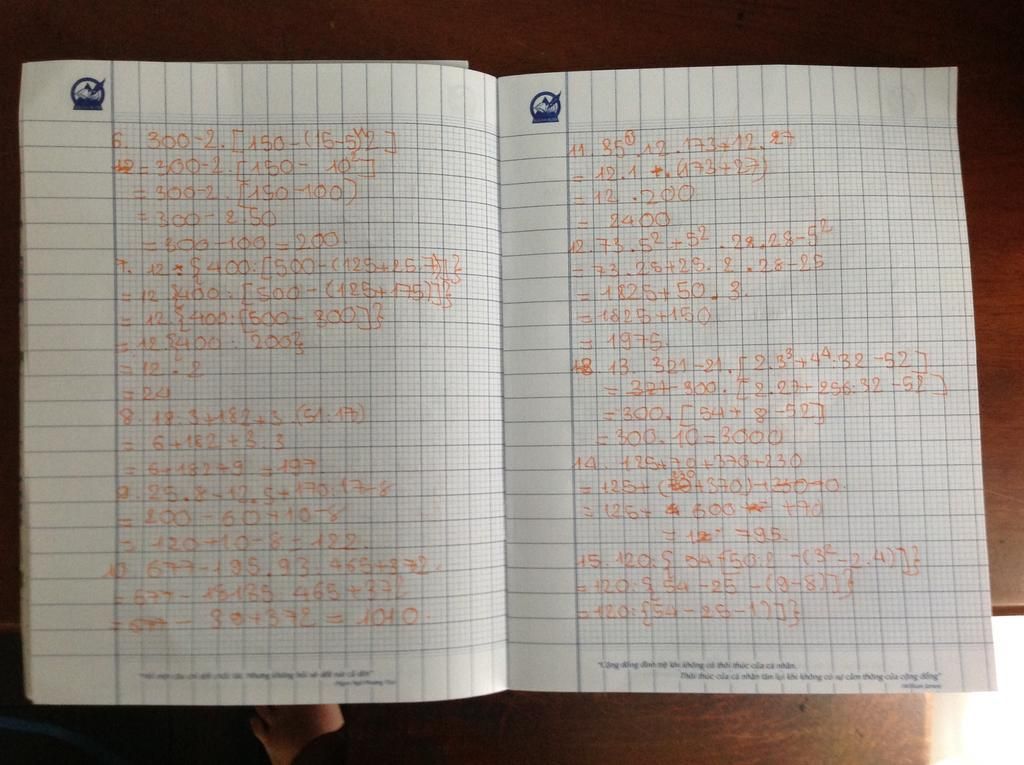 6. 300-2.[150-(15-5)^2]
= 300-2.[150- 10²]
= 300-2.[150-100)
= 300-2.50
= 300-100 = 200
7. 12 {400:[500-(125+25.7)]}
= 12 {400:[500-(125+175)]}
= 12{400:[500-300]}
= 12{400 : 200}
= 12.2
= 24
8. 18:3+182+3.(51:17)
= 6+182+3.3
= 6+182+9 = 197
9. 25.8-12.5+170:17-8
= 200-60+10-8
= 120+10-8=122.
10. 677-195.93:465+372.
= 677- 18135:465+372
= - 39+372 = 1010.
11. 85⁰.12.173+12.27
= 12.1.(173+27)
= 12.200
= 2400
12. 73.5²+5².28.28-5²
= 73.25+25.2.28-25
= 1825+50.3.
= 1825+150
= 1975
13. 321-21.[2.3³+4⁴:32-52]
= 300.[2.27+256:32-52]
= 300.[54+8-52]
= 300.10=3000
14. 125+70+370+230
= 125+(230+370)
= 125+ 600 +70
= 795.
15. 120:{54-[50:2-(3²-2.4)]}
= 120:{54-25-(9-8)]}
= 120:{54-25-1)]}
"Cộng đồng đình trệ khi không có thôi thúc của cá nhân.
Thôi thúc của cá nhân tàn lụi khi không có sự cảm thông của cộng đồng"
(William James)